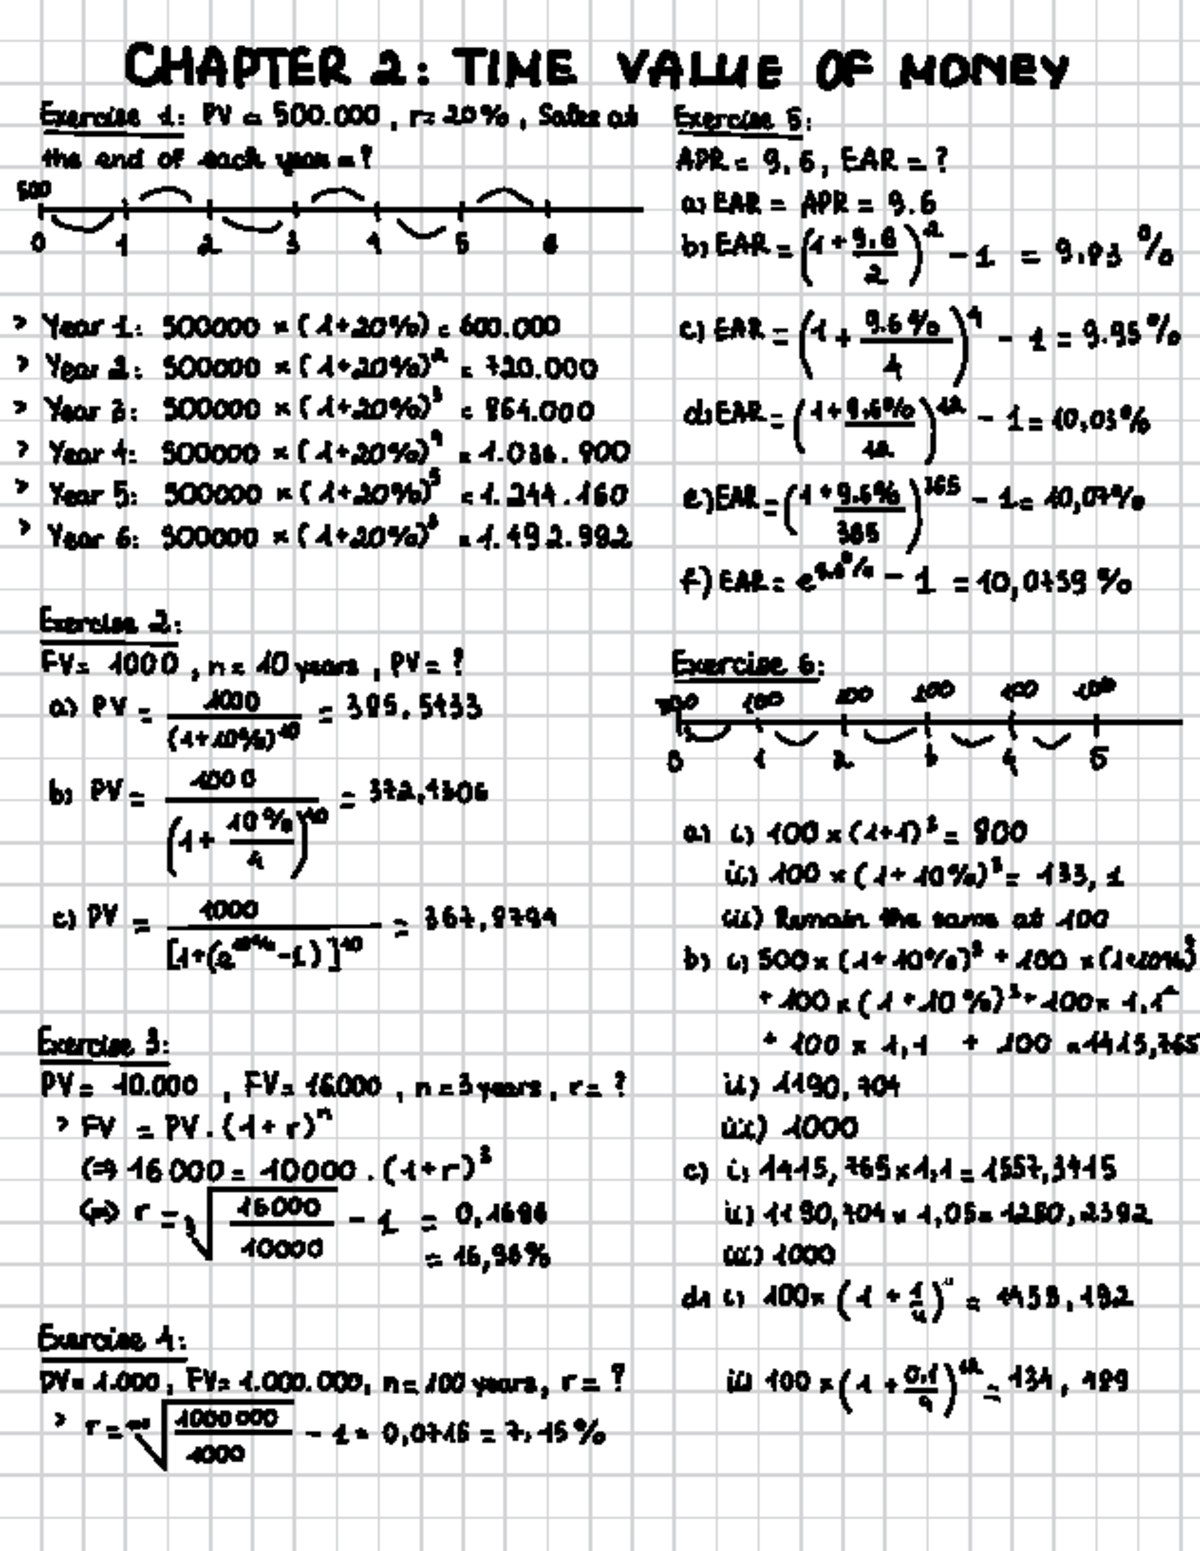 CHAPTER 2: TIME VALUE OF MONEY
Exercise 1: PV = 500.000, r= 20%, Sales at
the end of each year = ?
500
0 1 2 3 4 5 6
> Year 1: 500000 × (1+20%) = 600.000
> Year 2: 500000 × (1+20%)² = 720.000
> Year 3: 500000 × (1+20%)³ = 864.000
> Year 4: 500000 × (1+20%)⁴ = 1.036.800
> Year 5: 500000 × (1+20%)⁵ = 1.244.160
> Year 6: 500000 × (1+20%)⁶ = 1.492.992
Exercise 2:
FV= 1000, n= 10 years, PV= ?
a) PV = 1000 / (1+10%)¹⁰ = 385,5433
b) PV = 1000 / (1+ 10%/4)¹⁰ = 372,4306
c) PV = 1000 / [1+(e^10% -1)]¹⁰ = 367,8794
Exercise 3:
PV= 10.000, FV= 16000, n=3 years, r= ?
> FV = PV.(1+r)ⁿ
(=> 16000 = 10000.(1+r)³
(=> r = ³√(16000/10000) - 1 = 0,1696
= 16,96%
Exercise 4:
PV= 1.000, FV= 1.000.000, n= 100 years, r= ?
> r = ¹⁰⁰√(1000000/1000) - 1 = 0,0715 = 7,15%
Exercise 5:
APR = 9.6, EAR = ?
a) EAR = APR = 9.6
b) EAR = (1+ 9.6/2)² - 1 = 9.83 %
c) EAR = (1 + 9.6%/4)⁴ - 1 = 9.95%
d) EAR = (1+ 9.6%/12)¹² - 1 = 10,03%
e) EAR = (1+ 9.6%/365)³⁶⁵ - 1 = 10,07%
f) EAR = e^9.6% - 1 = 10,0759 %
Exercise 6:
100 100 100 100 100
0 1 2 3 4 5
a) i) 100 × (1+1)³ = 800
ii) 100 × (1+10%)³ = 133,1
iii) Remain the same at 100
b) i) 500 × (1+10%)⁵ + 100 × (1+10%)
+ 100 × (1+10%)³ + 100× 1,1²
+ 100 × 1,1 + 100 = 1415,765
ii) 1190,704
iii) 1000
c) i) 1415,765×1,1 = 1557,3415
ii) 1190,704 × 1,05= 1250,2392
iii) 1000
d) i) 100× (1 + 1/4) = 1455,192
ii) 100 × (1 + 0,1/4)¹² = 134,489